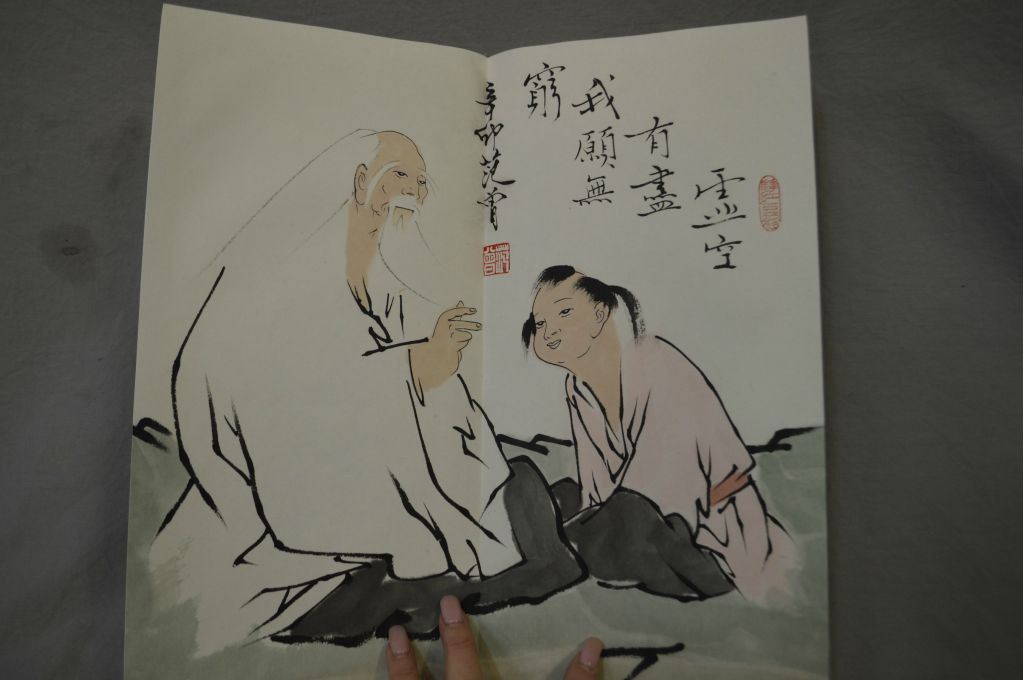 虛空
有盡
我願無
窮
辛卯范曾
范曾